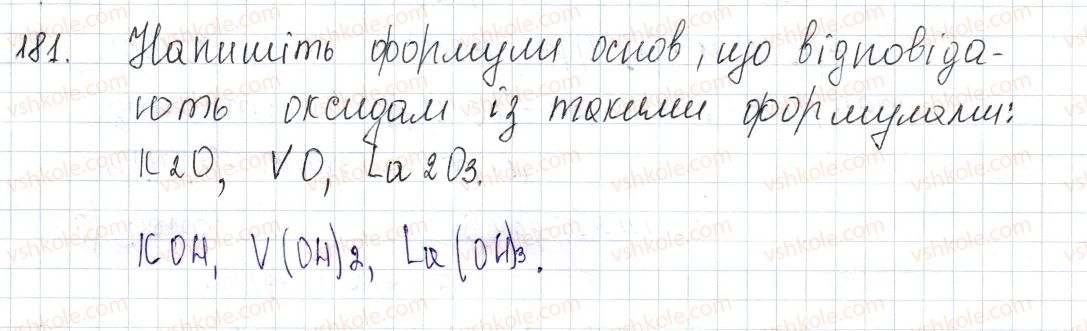 181. Напишіть формули основ, що відповіда-
ють оксидам із такими формулами:
K2O, VO, La2O3.
KOH, V(OH)2, La(OH)3.